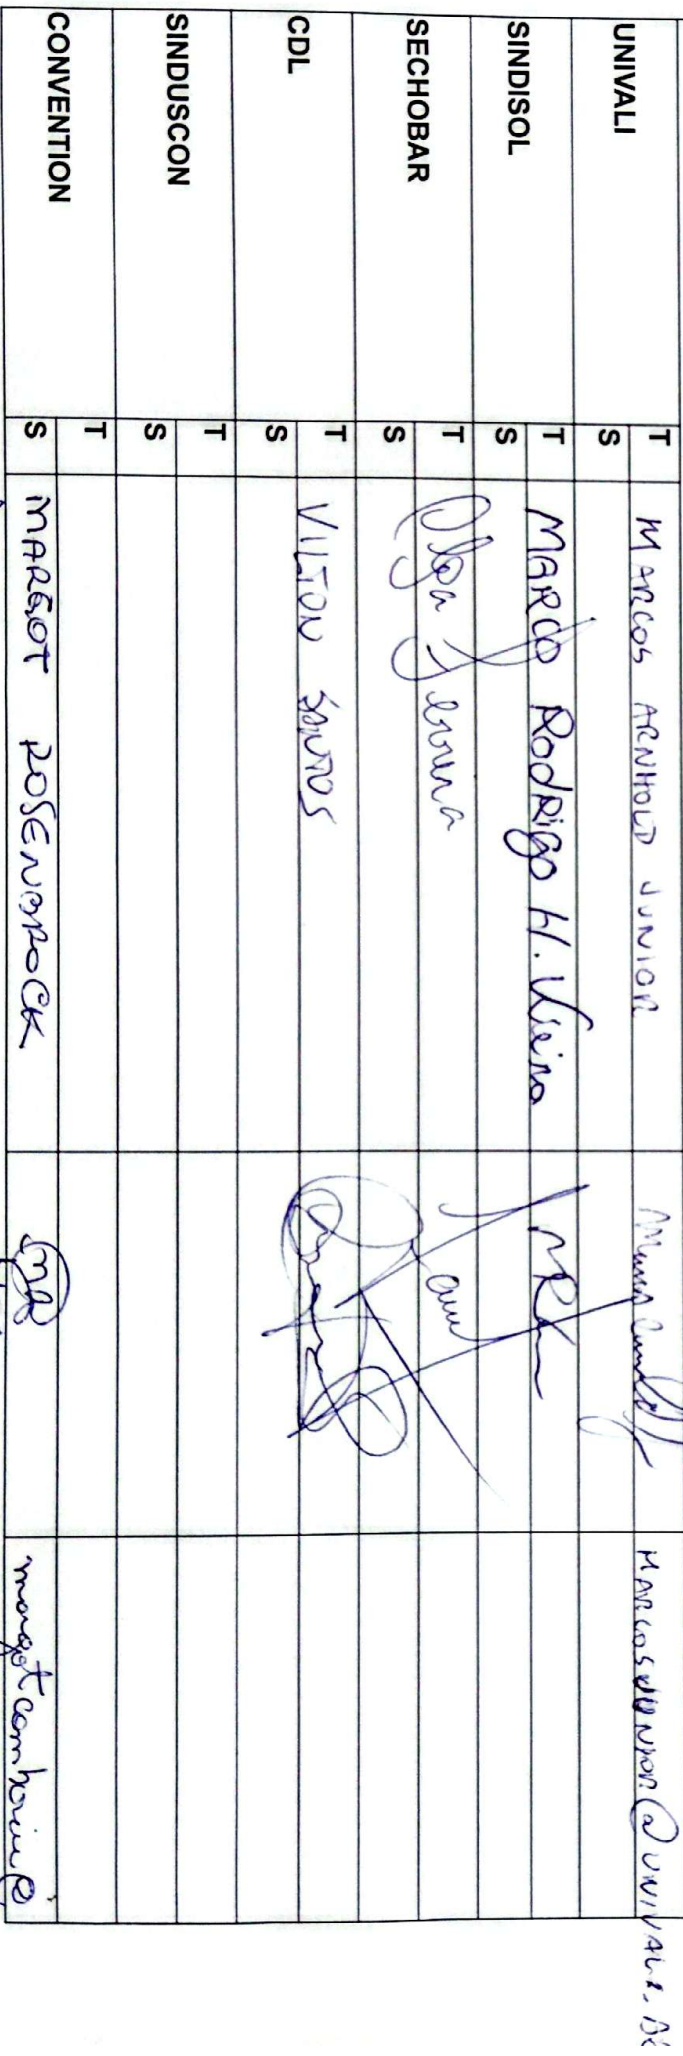 UNIVALI T MARCOS ARNHOLD JUNIOR
S
SINDISOL T MARCO RODRIGO H. Vieira
S
SECHOBAR T Olga Ferreira
S
CDL T VILTON SANTOS
S
SINDUSCON T
S
CONVENTION T
S MARGOT ROSENBROCK margotcamboriu@